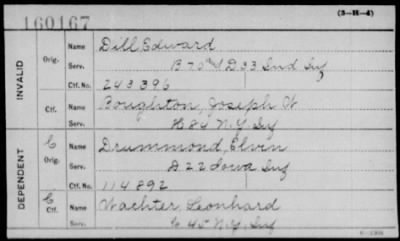 160167
(3-H-4)
INVALID
Orig.
Name Dill, Edward
Serv. B 70 & D 33 Ind Inf
Ctf. No. 243396
Ctf.
Name Boughton, Joseph
Serv. 84 N.Y. Inf
DEPENDENT
C
Orig.
Name Drummond, Elvin
Serv. D 22 Iowa Inf
Ctf. No. 114892
C
Ctf.
Name Wachter, Leonhard
Serv. 45 N.Y. Inf